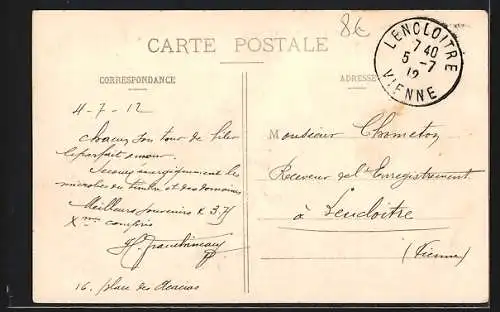 CARTE POSTALE
86
LENCLOITRE
7 40
5 -7
12
VIENNE
CORRESPONDANCE
ADRESSE
4-7-12
chacun son tour de filer
le parfait amour.
Secouez énergiquement les
microbes du timbre et des domaines
Meilleurs souvenirs
compris
16, place des Acacias
Monsieur Chameton
Receveur de l'Enregistrement
à Lencloitre
(Vienne)